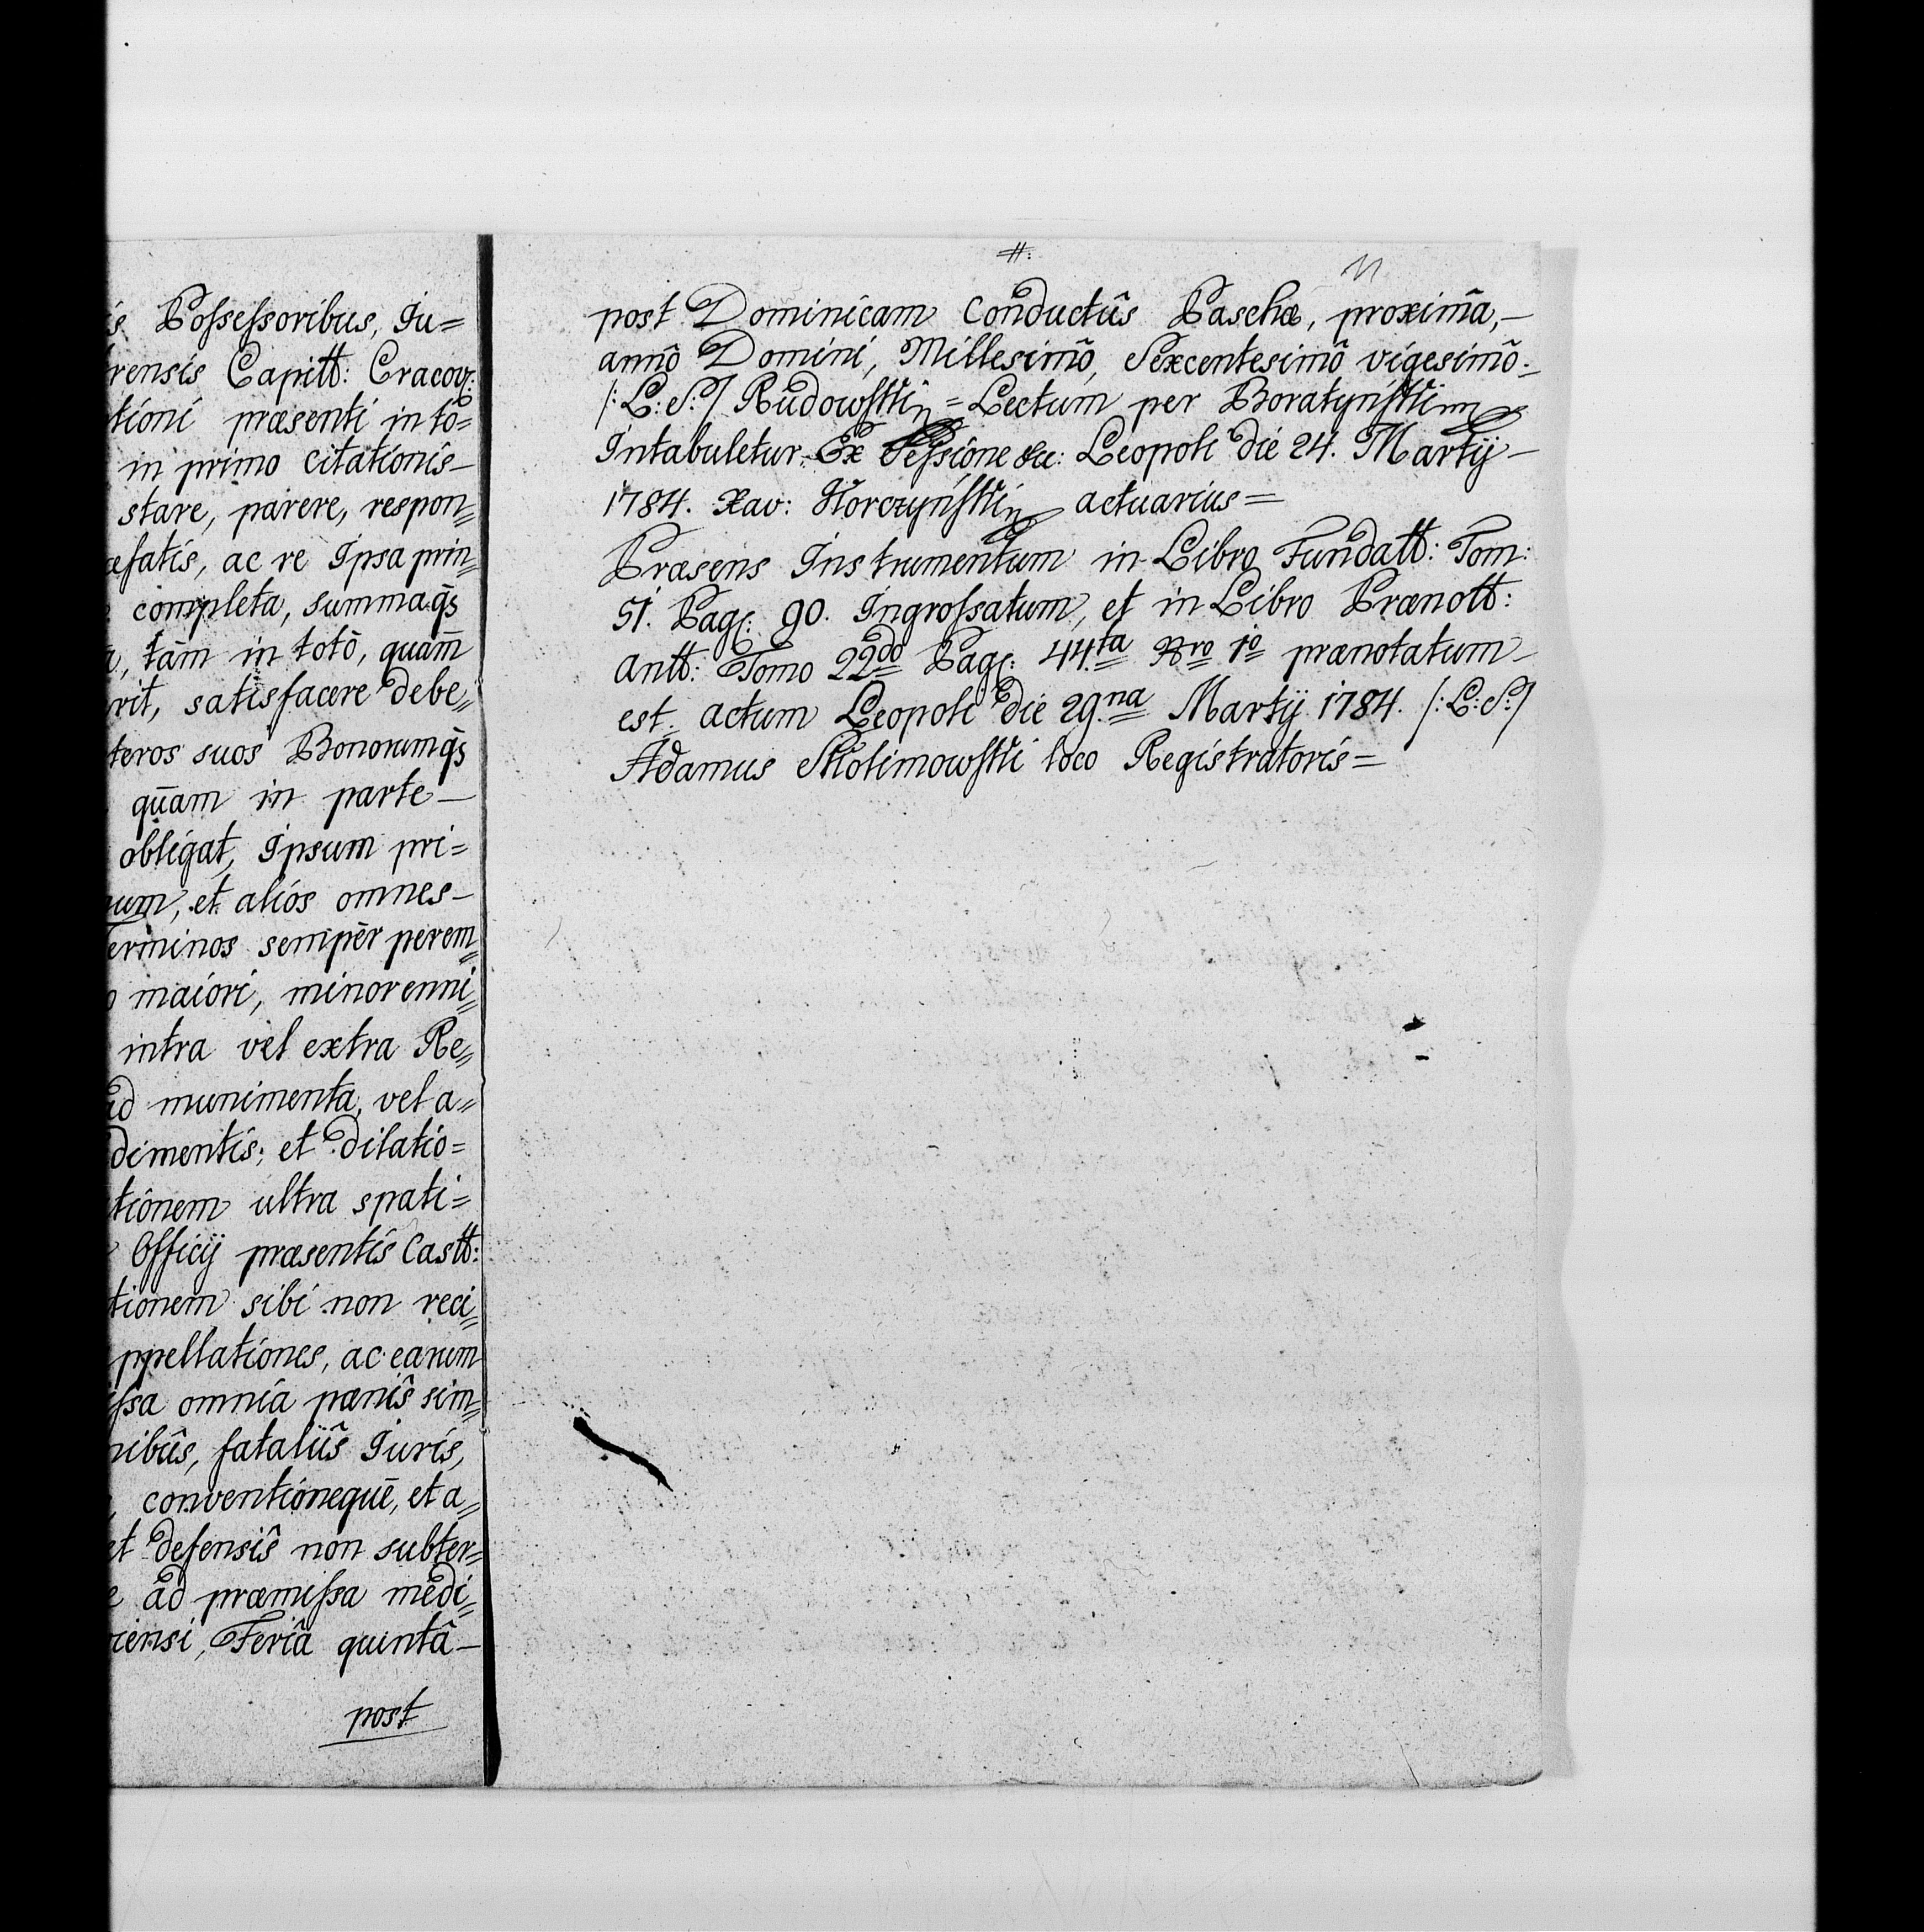 is Possessoribus, Ju=
rensis Capitt: Cracov:
tioni præsenti in to=
in primo Citationis—
stare, parere, respon=
æfatis, ac re Ipsa prin=
completa, summaqs
a, tàm in totô, quam̄
rit, satisfacere debe=
teros suos Bonorumqs
quam in parte—
obligat, Ipsum pri=
num, et aliós omnes—
erminos sempèr perem=
o maióri, minorenni=
intra vel extra Re=
ad munimenta, vel a=
dimentis; et dilatio=
tiônem ultra spati=
Officij præsentis Castt:
tionem sibi non reci=
ppellationes, ac earum
ssa omnia pænîs sim=
nibûs, fatalijs Juris,
conventióneque, et a=
et defensîs non subter=
e ad præmissa medi=
ciensi, Feriâ quintâ—
post
#.
11
post Dominicam Conductûs Paschæ, proximâ,—
annô Domini, Millesimô, Sexcentesimô vigesimô.—
/:L:S:/ Rudowskii = Lectum per Boratyński mp
Intabuletur. Ex Sessione &c: Leopoli die 24. Martij—
1784. Xav: Horczyński actuarius=
Præsens Instrumentum in Libro Fundatt: Tom:
51. Pag: 90. Ingrossatum, et in Libro Prænott:
antt: Tomo 22do Pag: 44.ta Nro 1o prænotatum—
est. actum Leopoli die 29.na Martij 1784. /:L:S:/
Adamus Skolimowski loco Registratoris=